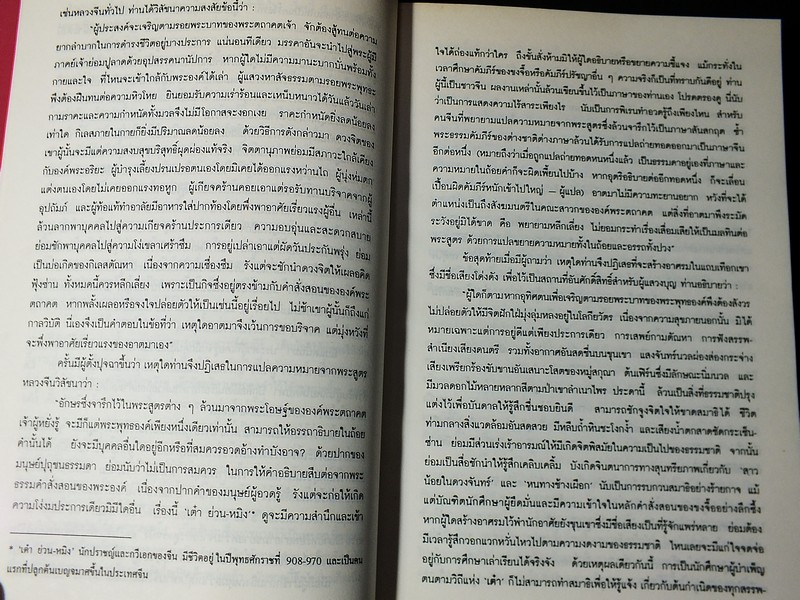 เช่นหลวงจีนทั่วไป ท่านได้วิสัชนาความสงสัยข้อนี้ว่า :
"ผู้ประสงค์จะเจริญตามรอยพระบาทของพระตถาคตเจ้า จักต้องสู้ทนต่อความ
ยากลำบากในการดำรงชีวิตอยู่บางประการ แน่นอนทีเดียว มรรคาอันจะนำไปสู่พระผู้มี
ภาคย์เจ้าย่อมปูลาดด้วยอุปสรรคนานัปการ หากผู้ใดไม่มีความมานะบากบั่นพร้อมทั้ง
กายและใจ ที่ไหนจะเข้าใกล้กับพระองค์ได้เล่า ผู้แสวงหาสัจธรรมตามรอยพระพุทธะ
พึงต้องฝืนทนต่อความหิวโหย ยินยอมรับความเร่าร้อนและเหน็บหนาวได้วันแล้ววันเล่า
กามราคะและความกำหนัดทั้งมวลจึงไม่มีโอกาสจะงอกเงย ราคะกำหนัดยิ่งลดน้อยลง
เท่าใด กิเลสภายในกายก็ยิ่งมีปริมาณลดน้อยลง ด้วยวิธีการดังกล่าวมา ดวงจิตของ
เขาผู้นั้นจะมีแต่ความสงบสุขบริสุทธิ์ผุดผ่องแท้จริง จิตตานุภาพย่อมมีสภาวะใกล้เคียง
กับองค์พระอริยะ ผู้บำรุงเลี้ยงปรนเปรอตนเองโดยมิเคยได้ออกแรงหว่านไถ ผู้นุ่งห่มตก
แต่งตนเองโดยไม่เคยออกแรงทอหูก ผู้เกียจคร้านคอยเอาแต่รอรับทานบริจาคจากผู้
อุปถัมภ์ และผู้ท้อแท้ทำอาลัยมีอาหารใส่ปากท้องโดยพึ่งพาอาศัยเรี่ยวแรงผู้อื่น เหล่านี้
ล้วนลากพาบุคคลไปสู่ความเกียจคร้านประการเดียว ความอบอุ่นและสะดวกสบาย
ย่อมชักพาบุคคลไปสู่ความโง่เขลาเศร้าซึม การอยู่เปล่าเอาแต่ผัดวันประกันพรุ่ง ย่อม
เป็นบ่อเกิดของกิเลสตัณหา เนื่องจากความเซื่องซึม รังแต่จะชักนำดวงจิตให้เผลอคิด
ฟุ้งซ่าน ทั้งหมดนี้ควรหลีกเลี่ยง เพราะเป็นกิจซึ่งอยู่ตรงข้ามกับคำสั่งสอนขององค์พระ
ตถาคต หากพลั้งเผลอหรือจงใจปล่อยตัวให้เป็นเช่นนี้อยู่เรื่อยไป ไม่ช้าเขาผู้นั้นก็ถึงแก่
กาลวิบัติ นี่เองจึงเป็นคำตอบในข้อที่ว่า เหตุใดอาตมาจึงเว้นการขอบริจาค แต่มุ่งหวังที่
จะพึ่งพาอาศัยเรี่ยวแรงของอาตมาเอง"
ครั้นมีผู้ตั้งปุจฉาขึ้นว่า เหตุใดท่านจึงปฏิเสธในการแปลความหมายจากพระสูตร
หลวงจีนวิสัชนาว่า :
"อักษรซึ่งจารึกไว้ในพระสูตรต่าง ๆ ล้วนมาจากพระโอษฐ์ขององค์พระตถาคต
เจ้าผู้หยั่งรู้ จะมีก็แต่พระพุทธองค์เพียงหนึ่งเดียวเท่านั้น สามารถให้อรรถาธิบายในถ้อย
คำนั้นได้ ยังจะมีบุคคลอื่นใดอยู่อีกหรือที่สมควรอวดอ้างทำบังอาจ? ด้วยปากของ
มนุษย์ปุถุชนธรรมดา ย่อมนับว่าไม่เป็นการสมควร ในการให้คำอธิบายสืบต่อจากพระ
ธรรมคำสั่งสอนของพระองค์ เนื่องจากปากคำของมนุษย์ผู้อวดรู้ รังแต่จะก่อให้เกิด
ความโง่งมประการเดียวมิมีใดอื่น เรื่องนี้ 'เต๋า ย่วน-หมิง'* ดูจะมีความสำนึกและเข้า
* 'เต๋า ย่วน-หมิง' นักปราชญ์และกวีเอกของจีน มีชีวิตอยู่ในปีพุทธศักราชที่ 908-970 และเป็นคน
แรกที่ปลูกต้นเบญจมาศขึ้นในประเทศจีน
ใจได้ถ่องแท้กว่าใคร ถึงขั้นสั่งห้ามมิให้ผู้ใดอธิบายหรือขยายความชี้แจง แม้กระทั่งใน
เวลาศึกษาคัมภีร์ของขงจื้อหรือคัมภีร์ปรัชญาอื่น ๆ ความจริงก็เป็นที่ทราบกันดีอยู่ ท่าน
ผู้นี้เป็นชาวจีน ผลงานเหล่านั้นล้วนเขียนขึ้นไว้เป็นภาษาของท่านเอง โปรดตรองดู นี่นับ
ว่าเป็นการแสดงความไร้สาระเพียงไร นับเป็นการพิเรนทำอวดรู้ถึงเพียงไหน สำหรับ
คนจีนที่พยายามแปลความหมายจากพระสูตรซึ่งล้วนจารึกไว้เป็นภาษาสันสกฤต ซ้ำ
พระธรรมคัมภีร์ของต่างชาติต่างภาษาล้วนได้รับการแปลถ่ายทอดออกมาเป็นภาษาจีน
อีกต่อหนึ่ง (หมายถึงว่าเมื่อถูกแปลถ่ายทอดหนหนึ่งแล้ว เป็นธรรมดาอยู่เองที่ภาษาและ
ความหมายในถ้อยคำก็จะผิดเพี้ยนไปบ้าง หากอุตริอธิบายต่ออีกทอดหนึ่ง ก็จะเลื่อน
เปื้อนผิดคัมภีร์หนักเข้าไปใหญ่ – ผู้แปล) อาตมาไม่มีความทะยานอยาก หวังที่จะได้
ตำแหน่งเป็นถึงสังฆมนตรีในคณะสาวกขององค์พระตถาคต แต่สิ่งที่อาตมาพึงระมัด
ระวังอยู่มิได้ขาด คือ พยายามหลีกเลี่ยง ไม่ยอมกระทำเรื่องเสื่อมเสียให้เป็นมลทินต่อ
พระสูตร ด้วยการแปลขยายความหมายทั้งในถ้อยและอรรถทั้งปวง"
ข้อสุดท้ายเมื่อมีผู้ถามว่า เหตุใดท่านจึงปฏิเสธที่จะสร้างอาศรมในแถบเทือกเขา
ซึ่งมีชื่อเสียงโด่งดัง เพื่อไว้เป็นสถานที่อันศักดิ์สิทธิ์สำหรับผู้แสวงบุญ ท่านอธิบายว่า :
"ผู้ใดก็ตามหากอุทิศตนเพื่อเจริญตามรอยพระบาทของพระพุทธองค์พึงต้องสังวร
ไม่ปล่อยตัวให้มีจิตฝักใฝ่มุ่งลุ่มหลงอยู่ในโลกียวัตร เนื่องจากความสุขภายนอกนั้น มิได้
หมายเฉพาะแต่การอยู่ดีแต่เพียงประการเดียว การเสพย์กามตัณหา การฟังสรรพ-
สำเนียงเสียงดนตรี รวมทั้งอากาศอันสดชื่นบนขุนเขา แสงจันทร์นวลผ่องส่องกระจ่าง
เสียงเพรียกร้องขับขานอันเสนาะโสตของหมู่สกุณา ต้นเฟิร์นซึ่งมีลักษณะนิ่มนวล และ
มีมวลดอกไม้หลายหลากสีตามป่าเขาลำเนาไพร ประดานี้ ล้วนเป็นสิ่งที่ธรรมชาติปรุง
แต่งไว้เพื่อบันดาลให้รู้สึกชื่นชอบยินดี สามารถชักจูงจิตใจให้ขาดสมาธิได้ ชีวิต
ท่ามกลางสิ่งแวดล้อมอันสดสวย มีหลืบถ้ำหินชะโงกง้ำ และเสียงน้ำตกสาดซัดกระเซ็น-
ซ่าน ย่อมมีส่วนเร่งเร้าอารมณ์ให้มีเกิดจิตพิสมัยในความเป็นไปของธรรมชาติ จากนั้น
ย่อมเป็นสื่อชักนำให้รู้สึกเคลิบเคลิ้ม บังเกิดจินตนาการทางสุนทรียภาพเกี่ยวกับ 'สาว
น้อยในดวงจันทร์' และ 'หนทางช้างเผือก' นับเป็นการรบกวนสมาธิอย่างร้ายกาจ แม้
แต่บัณฑิตนักศึกษาผู้ยึดมั่นและมีความเข้าใจในหลักคำสั่งสอนของขงจื้ออย่างลึกซึ้ง
หากผู้ใดสร้างอาศรมไว้พำนักอาศัยยังขุนเขาซึ่งมีชื่อเสียงเป็นที่รู้จักแพร่หลาย ย่อมต้อง
มีเวลารู้สึกวอกแวกหวั่นไหวไปตามความงดงามของธรรมชาติ ไหนเลยจะมีแก่ใจจดจ่อ
อยู่กับการศึกษาเล่าเรียนได้จริงจัง ด้วยเหตุผลเดียวกันนี้ การเป็นนักศึกษาผู้บำเพ็ญ
ตนตามวิถีแห่ง 'เต๋า' ก็ไม่สามารถทำสมาธิเพื่อให้รู้แจ้ง เกี่ยวกับต้นกำเนิดของทุกสรรพ-